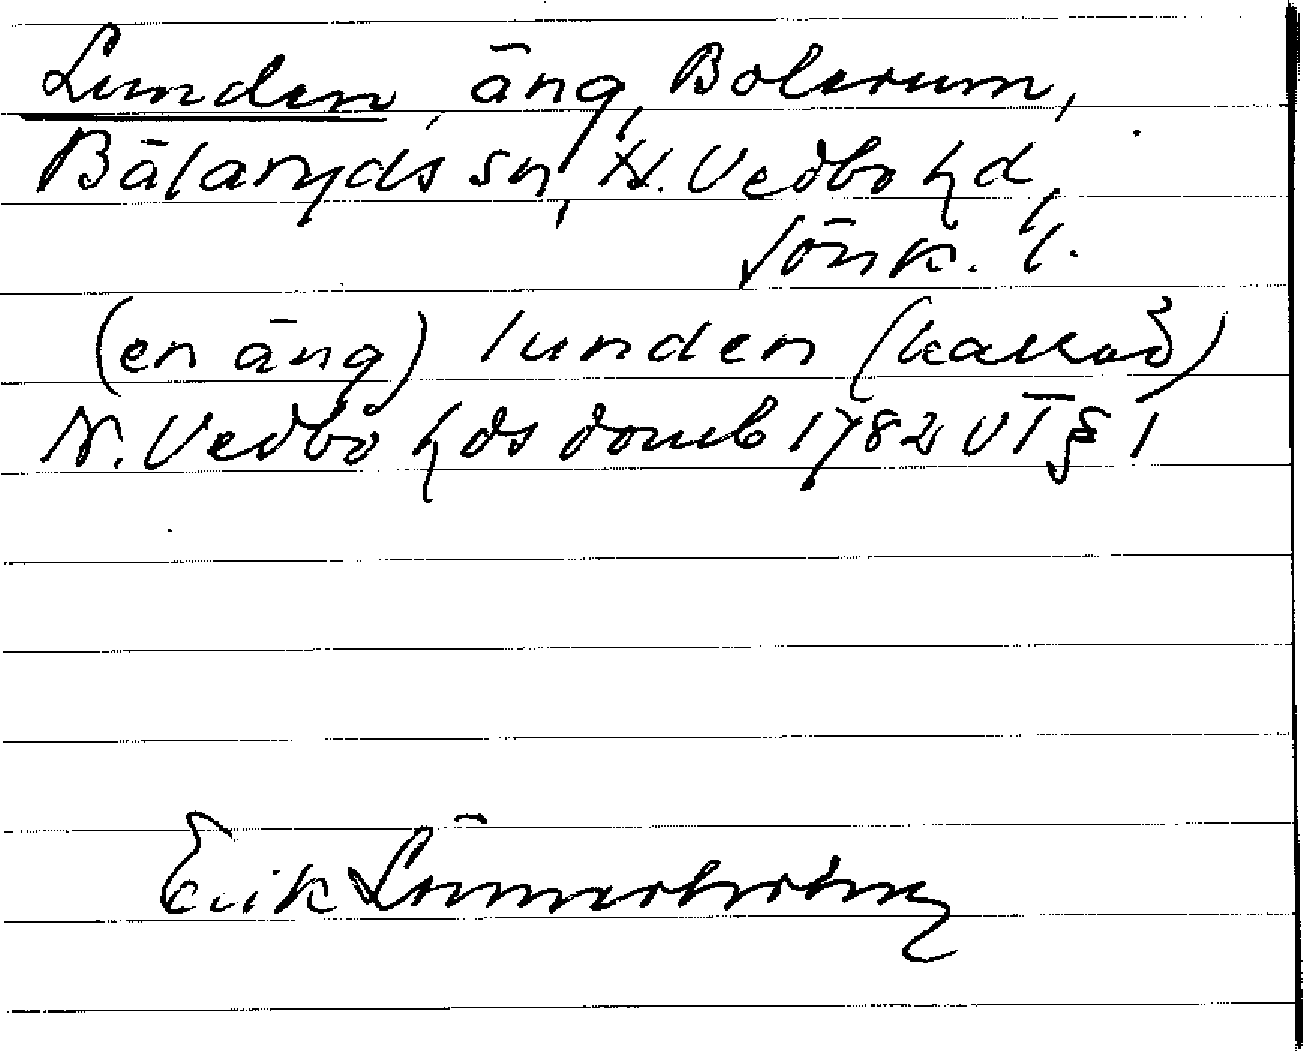 Lunden, äng, Bolerum,
Bälaryds sn, N. Vedbo hd,
Jönk. l.
(en äng) lunden (kallad)
N. Vedbo hds domb 1782 VT § 1
Erik Lönnerholm